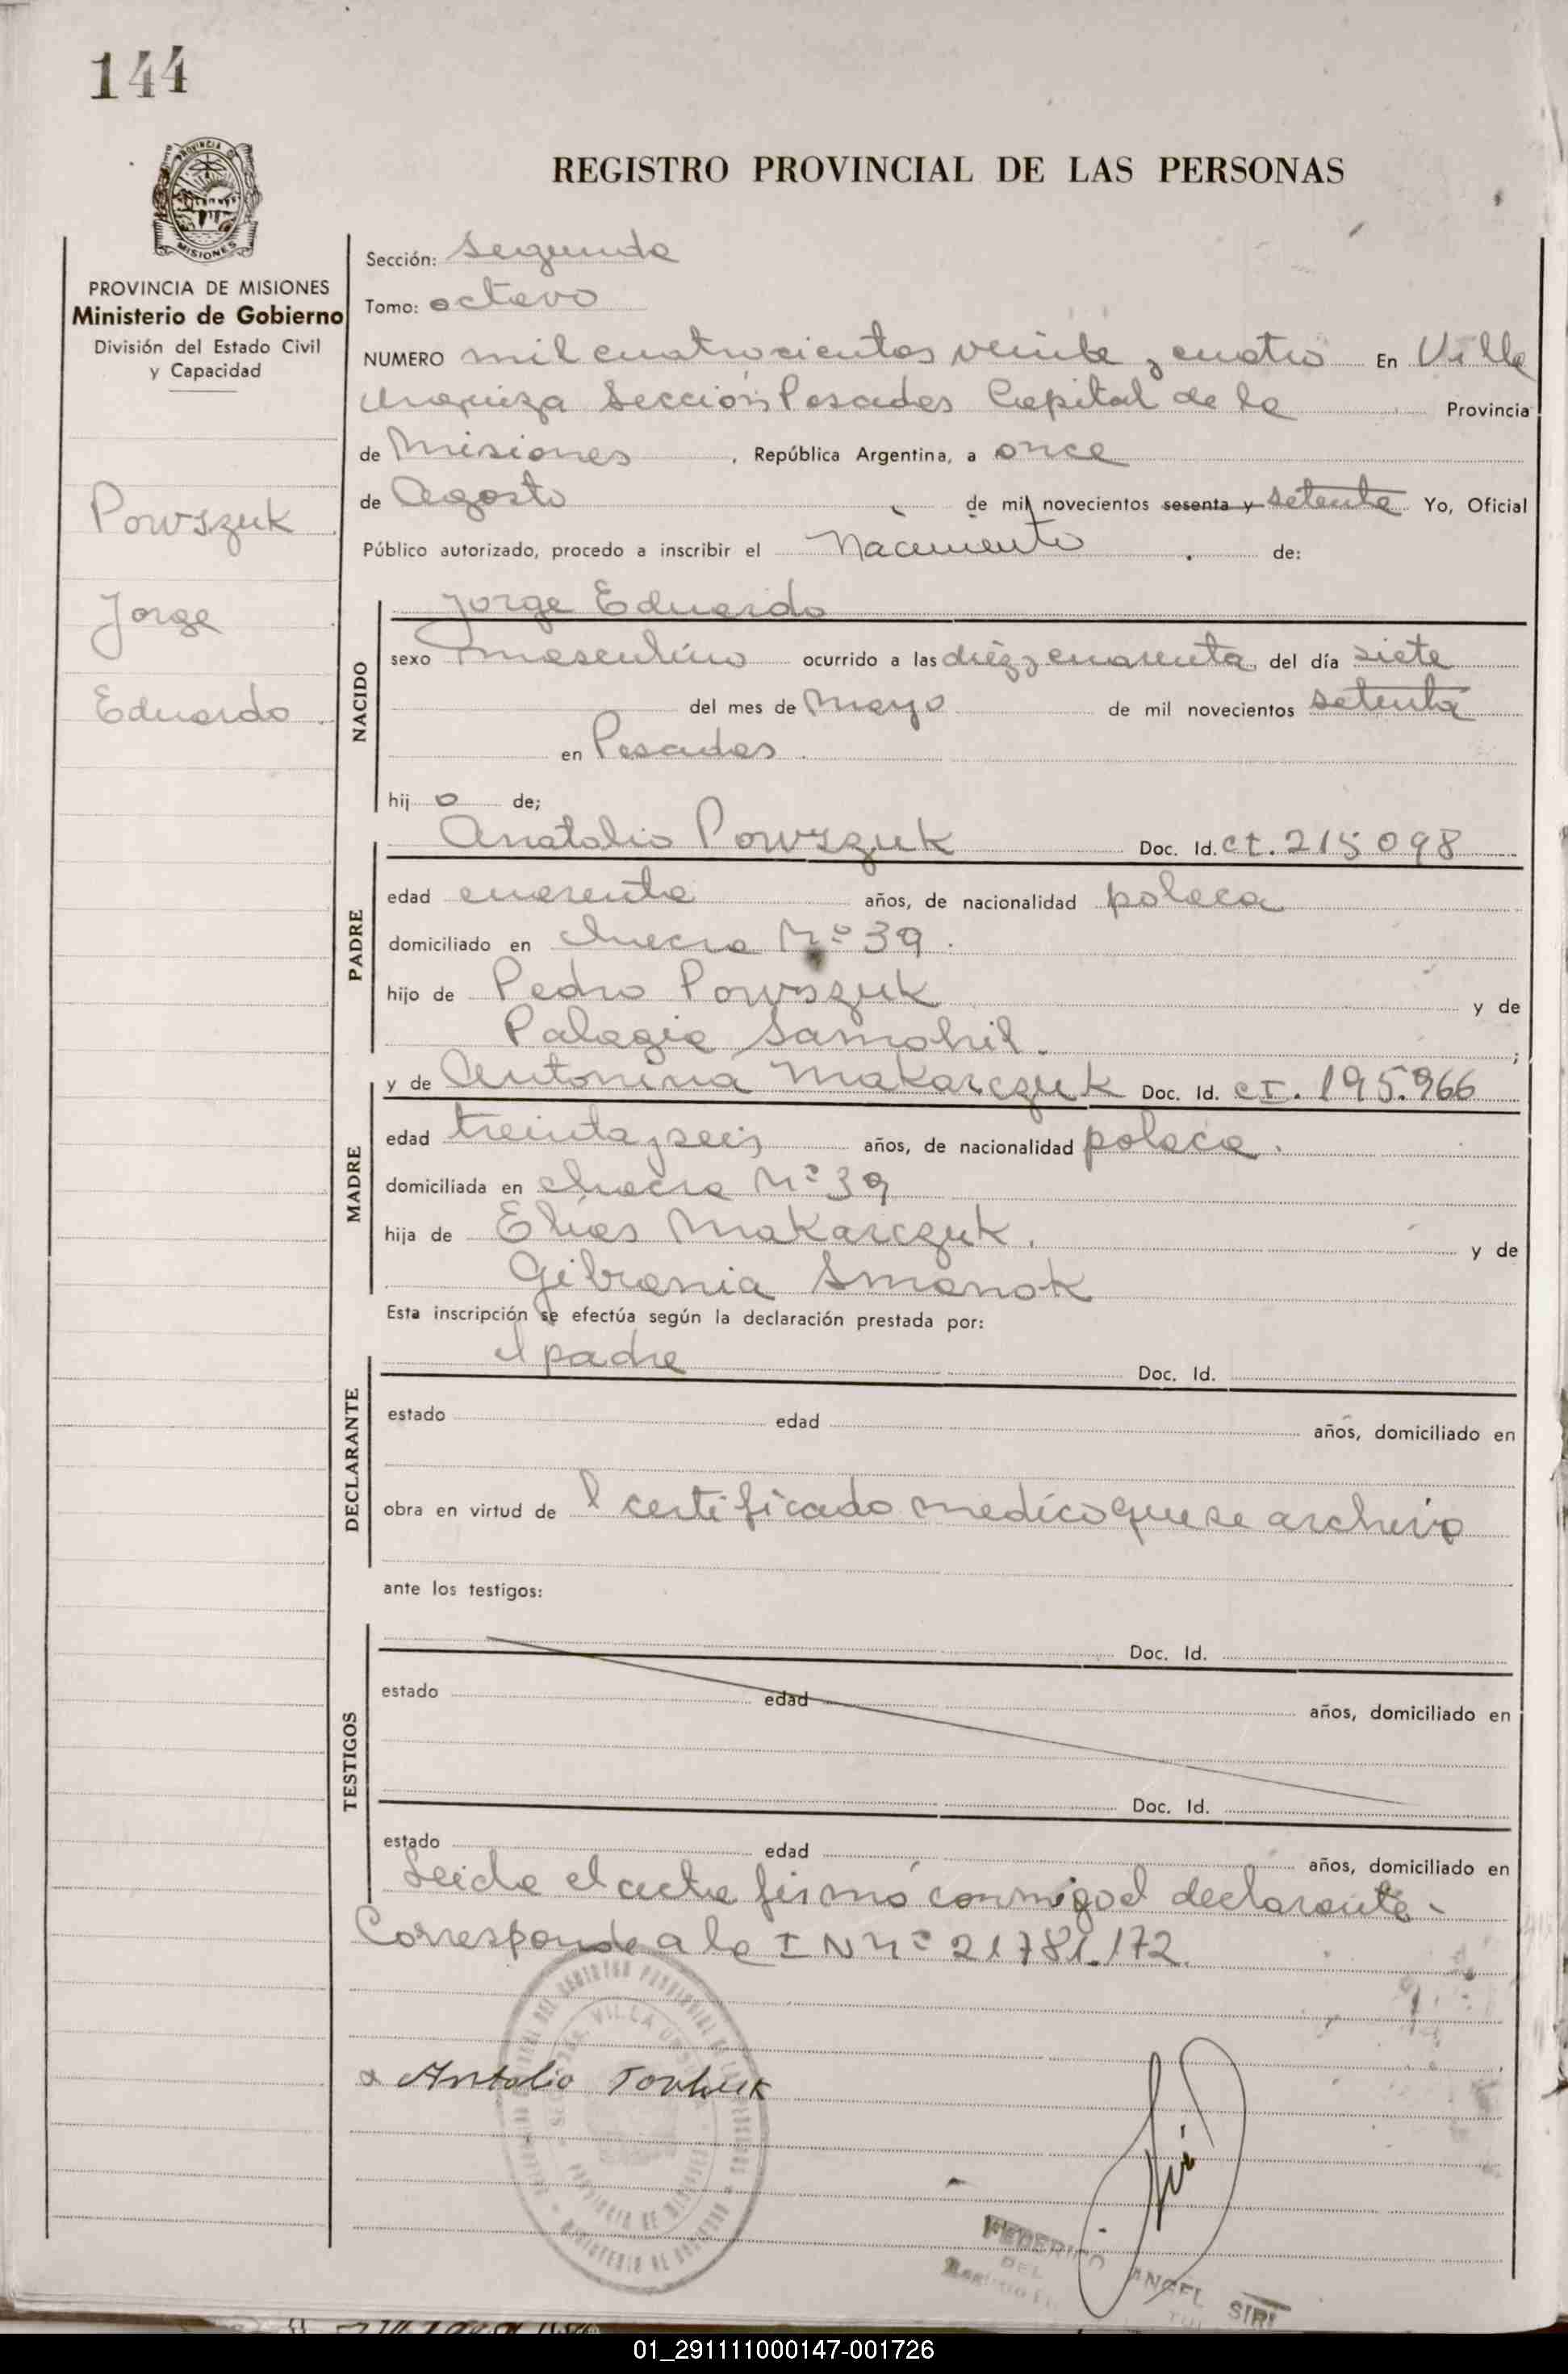 144
PROVINCIA DE
MISIONES
REGISTRO PROVINCIAL DE LAS PERSONAS
PROVINCIA DE MISIONES
Ministerio de Gobierno
División del Estado Civil
y Capacidad
Powszuk
Jorge
Eduardo
Sección: Segunda
Tomo: octavo
NUMERO mil cuatrocientos veinte y cuatro En Villa
Urquiza Sección Posadas Capital de la Provincia
de Misiones, República Argentina, a once
de Agosto de mil novecientos sesenta y setenta Yo, Oficial
Público autorizado, procedo a inscribir el Nacimiento de:
NACIDO
Jorge Eduardo
sexo masculino ocurrido a las diez y cuarenta del día siete
del mes de Mayo de mil novecientos setenta
en Posadas
hij o de;
PADRE
Anatolio Powszuk Doc. Id. CI. 215098
edad cuarenta años, de nacionalidad polaca
domiciliado en chacra Nº 39.
hijo de Pedro Powszuk y de
Palagia Samohil.;
MADRE
y de Antonina Makarczuk Doc. Id. CI. 195.966
edad treinta y seis años, de nacionalidad polaca.
domiciliada en chacra Nº 39
hija de Elias Makarczuk. y de
Gibrania Smanok
Esta inscripción se efectúa según la declaración prestada por:
DECLARANTE
el padre Doc. Id.
estado edad años, domiciliado en
obra en virtud de l certificado medico que se archiva
ante los testigos:
TESTIGOS
Doc. Id.
estado edad años, domiciliado en
Doc. Id.
estado edad años, domiciliado en
Leida el acta firmó conmigo el declarante -
Corresponde a la I N Nº 21781.172.
FEDERICO ANGEL SIRI
DEL
01_291111000147-001726